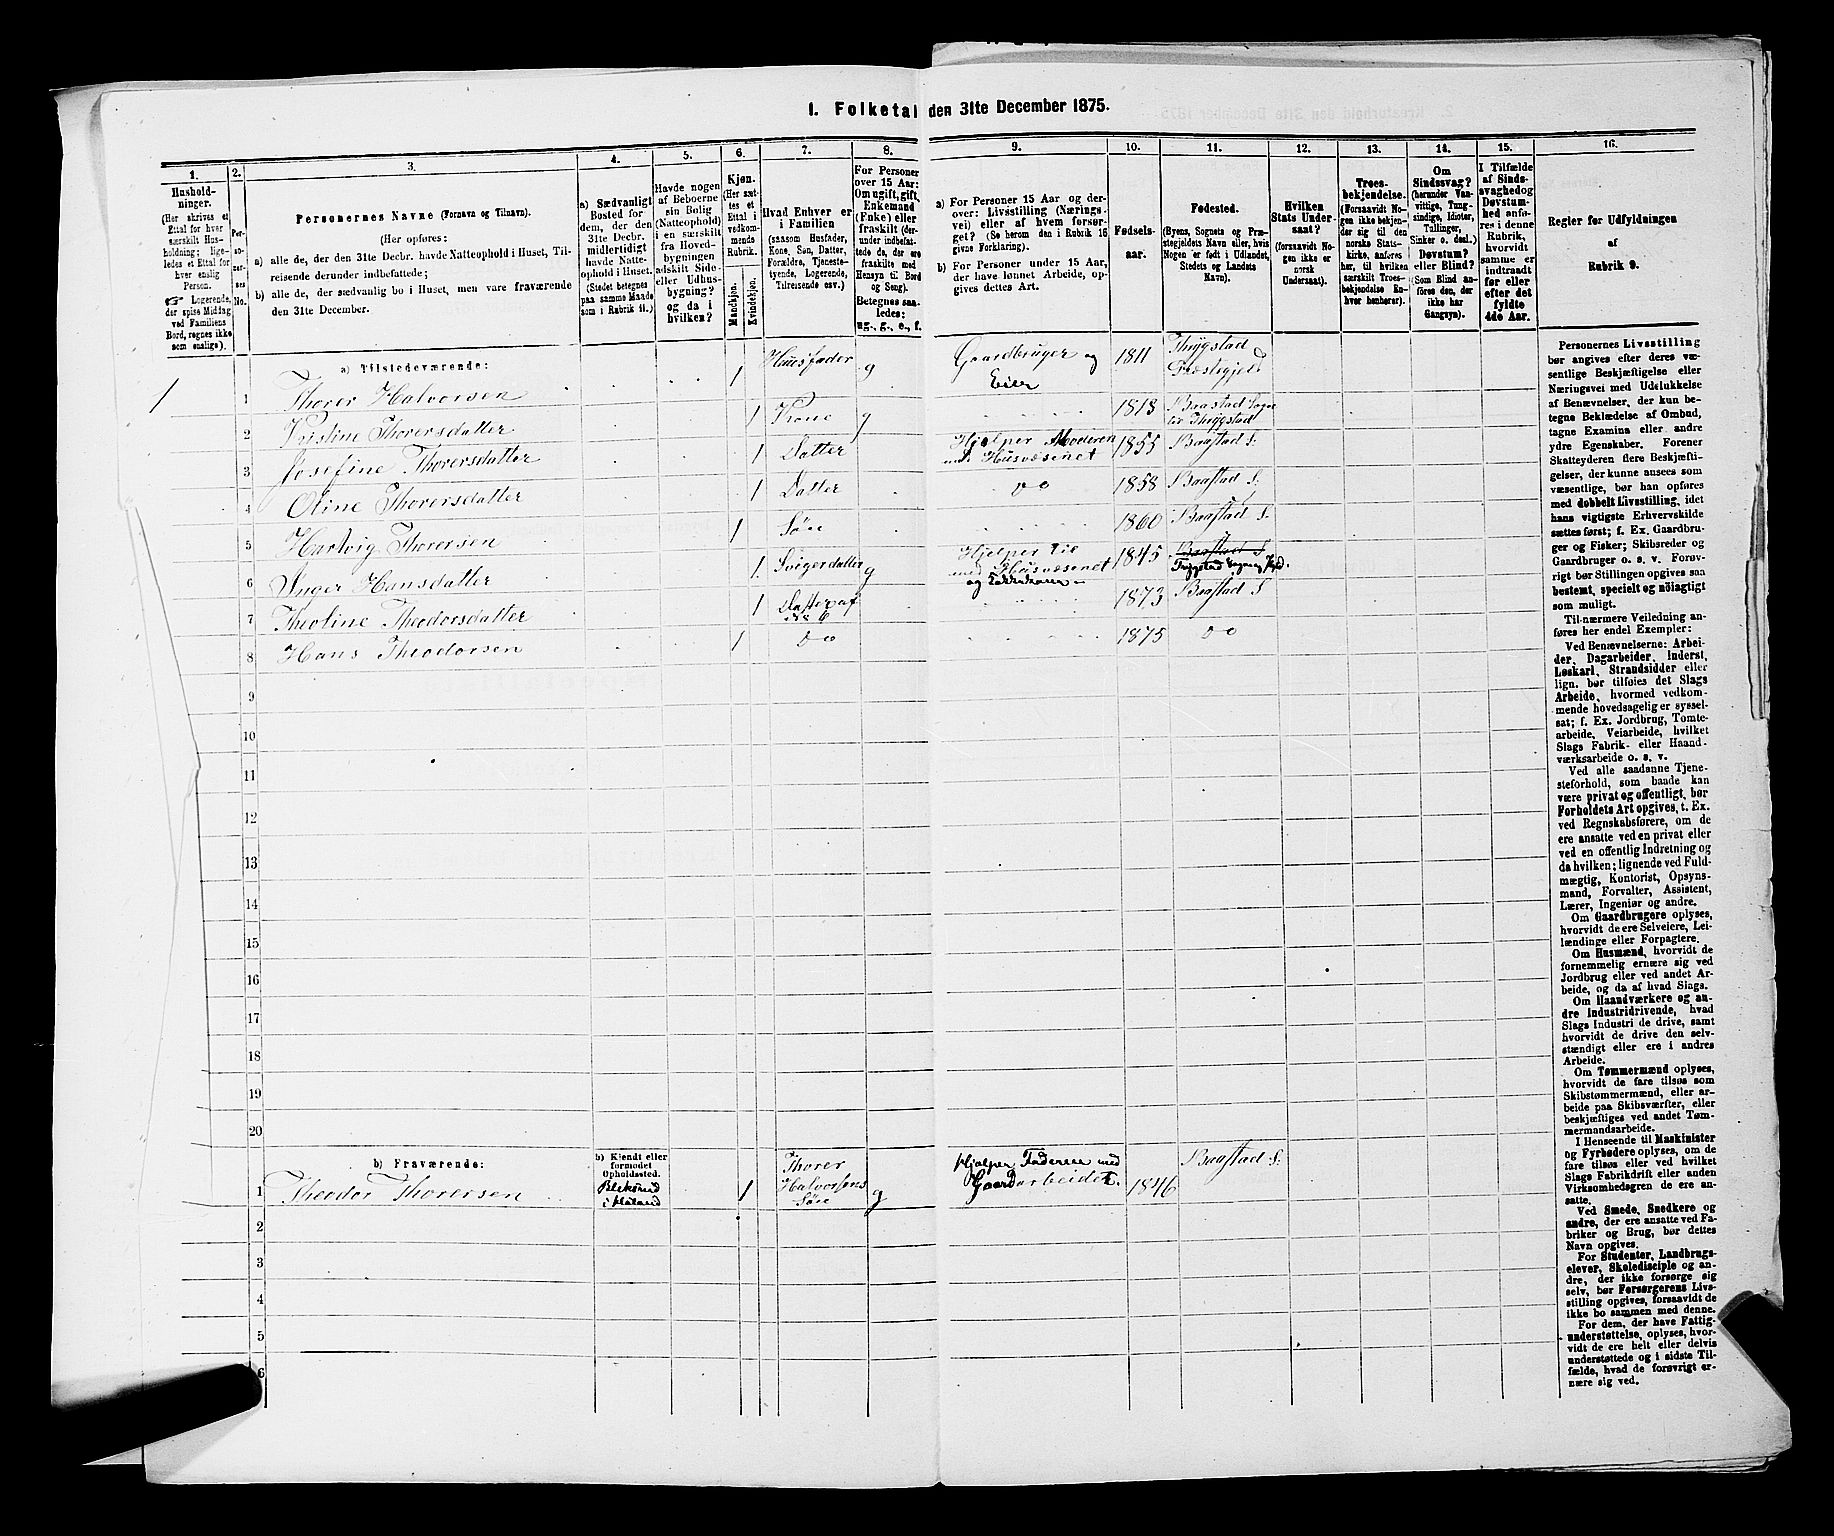 1. Folketal den 31te December 1875.
1.
Hushold-
ninger.
(Her skrives et
Ettal for hver
særskilt Hus-
holdning; lige-
ledes et Ettal for
hver enslig
Person.
☞ Logerende,
der spise Middag
ved Familiens
Bord, regnes ikke
som enslige).
2.
Per-
so-
ner-
ses
No.
3.
Personernes Navne (Fornavn og Tilnavn).
(Her opføres:
a) alle de, der den 31te Decbr. havde Natteophold i Huset, Til-
reisende derunder indbefattede;
b) alle de, der sædvanlig bo i Huset, men vare fraværende
den 31te December.
4.
a) Sædvanligt
Bosted for
dem, der den
31te Decbr.
midlertidigt
havde Natte-
ophold i Huset.
(Stedet betegnes
paa samme Maade
som i Rubrik 11.)
5.
Havde nogen
af Beboerne
sin Bolig
(Natteophold)
i en særskilt
fra Hoved-
bygningen
adskilt Side-
eller Udhus-
bygning?
og da i
hvilken?
6.
Kjøn.
(Her sæt-
tes et
Ettal i
vedkom-
mende
Rubrik.
Mandkjøn.
Kvindekjøn.
7.
Hvad Enhver er
i Familien
(saasom Husfader,
Kone, Søn, Datter,
Forældre, Tjeneste-
tyende, Logerende,
Tilreisende osv.)
8.
For Personer
over 15 Aar:
Om ugift, gift,
Enkemand
(Enke) eller
fraskilt (der-
under indbefat-
tede de, der ere
fraskilte med
Hensyn til Bord
og Seng).
Betegnes saa-
ledes:
ug., g., e., f.
9.
a) For Personer 15 Aar og der-
over: Livsstilling (Nærings-
vei) eller af hvem forsør-
get? (Se herom den i Rubrik 16
givne Forklaring).
b) For Personer under 15 Aar,
der have lønnet Arbeide, op-
gives dettes Art.
10.
Fødsels-
aar.
11.
Fødested.
(Byens, Sognets og Præ-
stegjeldets Navn eller, hvis
Nogen er født i Udlandet,
Stedets og Landets
Navn).
12.
Hvilken
Stats Under-
saat?
(forsaavidt No-
gen ikke er
norsk
Undersaat).
13.
Troes-
bekjendelse.
(Forsaavidt No-
gen ikke bekjen-
der sig til den
norske Stats-
kirke, anføres
her, til hvilken
særskilt Troes-
bekjendelse En-
hver henhører).
14.
Om
Sindssvag?
(herunder Van-
vittige, Tung-
sindige, Idioter,
Tullinger,
Sinker o. desl.)
Døvstum?
eller Blind?
(Som Blind an-
føres den, der
ikke har
Gangsyn).
15.
I Tilfælde
af Sinds-
svaghed og
Døvstum-
hed anfø-
res i denne
Rubrik,
hvorvidt
samme er
indtraadt
før eller
efter det
fyldte
4de Aar.
16.
Regler for Udfyldningen
af
Rubrik 9.
a) Tilstedeværende:
1 1 Thorer Halvorsen 1 Huusfader g Gaardbruger og Eier 1811 Thrygstad Præstegjeld
2 Kristine Thorersdatter 1 Kone g 1813 Baastad Sogn til Thrygstad
3 Josefine Thorersdatter 1 Datter Hjelper Moderen med Husvæsenet 1855 Baastad S.
4 Oline Thorersdatter 1 Datter do 1858 Baastad S.
5 Hartvig Thorersen 1 Søn 1860 Baastad S.
6 Inger Hansdatter 1 Svigerdatter g Hjelper til med Husvæsenet og 1845 Baastad S
7 Theoline Theodorsdatter 1 Datter af No 6 1873 Baastad S
8 Hans Theodorsen 1 do 1875 do
9
10
11
12
13
14
15
16
17
18
19
20
b) Fraværende:
b) Kjendt eller
formodet
Opholdssted.
1 Theodor Thorersen 1 Thorer Halvorsens Søn g Hjelper Faderen med Gaardarbeidet. 1846 Baastad S.
2
3
4
5
6
Personernes Livsstilling
bør angives efter deres væ-
sentlige Beskjæftigelse eller
Næringsvei med Udelukkelse
af Benævnelser, der kun be-
tegne Beklædelse af Ombud,
tagne Examina eller andre
ydre Egenskaber. Forener
Skatteyderen flere Beskjæfti-
gelser, der kunne ansees som
væsentlige, bør han opføres
med dobbelt Livsstilling, idet
hans vigtigste Erhvervskilde
sættes først; f. Ex. Gaardbru-
ger og Fisker; Skibsreder og
Gaardbruger o. s. v. Forøv-
rigt bør Stillingen opgives saa
bestemt, specielt og nöiagtigt
som muligt.
Til nærmere Veiledning an-
føres her endel Exempler:
Ved Benævnelserne: Arbei-
der, Dagarbeider, Inderst,
Løskarl, Strandsidder eller
lign. bør tilføies det Slags
Arbeide, hvormed vedkom-
mende hovedsagelig er syssel-
sat; f. Ex. Jordbrug, Tomte-
arbeide, Veiarbeide, hvilket
Slags Fabrik- eller Haand-
værksarbeide o. s. v.
Ved alle saadanne Tjene-
steforhold, som baade kan
være privat og offentligt, bør
Forholdets Art opgives, t. Ex.
ved Regnskabsførere, om de
ere ansatte ved en privat eller
ved en offentlig Indretning og
da hvilken; lignende ved Fuld-
mægtig, Kontorist, Opsyns-
mand, Forvalter, Assistent,
Lærer, Ingeniør og andre.
Om Gaardbrugere oplyses,
hvorvidt de ere Selveiere, Lei-
lændinge eller Forpagtere.
Om Husmænd, hvorvidt de
fornemmelig ernære sig ved
Jordbrug eller ved andet Ar-
beide, og da af hvad Slags.
Om Haandværkere og an-
dre Industridrivende, hvad
Slags Industri de drive, samt
hvorvidt de drive den selv-
stændigt eller ere i andres
Arbeide.
Om Tømmermænd oplyses,
hvorvidt de fare tilsøs som
Skibstømmermænd, eller ar-
beide paa Skibsværfter, eller
beskjæftiges ved andet Tøm-
mermandsarbeide.
I Henseende til Maskinister
og Fyrbødere oplyses, om de
fare tilsøs eller ved hvilket
Slags Fabrikdrift eller anden
Virksomhedsgren de ere an-
satte.
Ved Smede, Snedkere og
andre, der ere ansatte ved Fa-
briker og Brug, bør dettes
Navn opgives.
For Studenter, Landbrugs-
elever, Skoledisciple og an-
dre, der ikke forsørge sig
selv, bør Forsørgerens Livs-
stilling opgives, forsaavidt de
ikke bo sammen med denne.
For dem, der have Fattig-
understøttelse, oplyses, hvor-
vidt de ere helt eller delvis
understøttede og i sidste Til-
fælde, hvad de forøvrigt er-
nære sig ved.